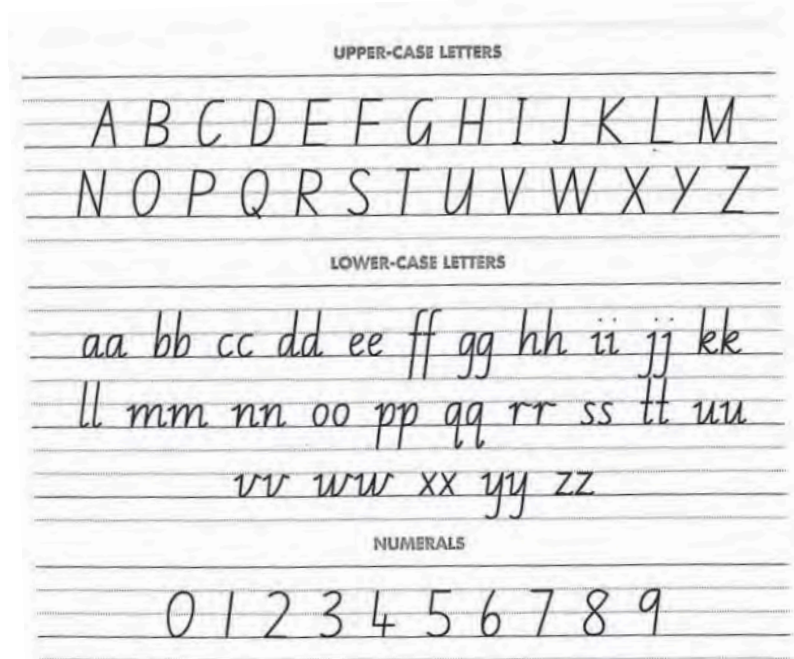 UPPER-CASE LETTERS
A B C D E F G H I J K L M
N O P Q R S T U V W X Y Z
LOWER-CASE LETTERS
aa bb cc dd ee ff gg hh ii jj kk
ll mm nn oo pp qq rr ss tt uu
vv ww xx yy zz
NUMERALS
0 1 2 3 4 5 6 7 8 9